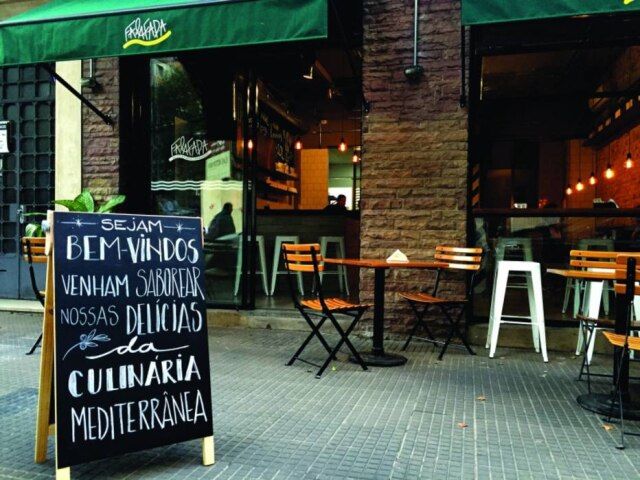 FARRAFADA
FARRAFADA
SEJAM
BEM-VINDOS
VENHAM SABOREAR
NOSSAS DELÍCIAS
da
CULINÁRIA
MEDITERRÂNEA